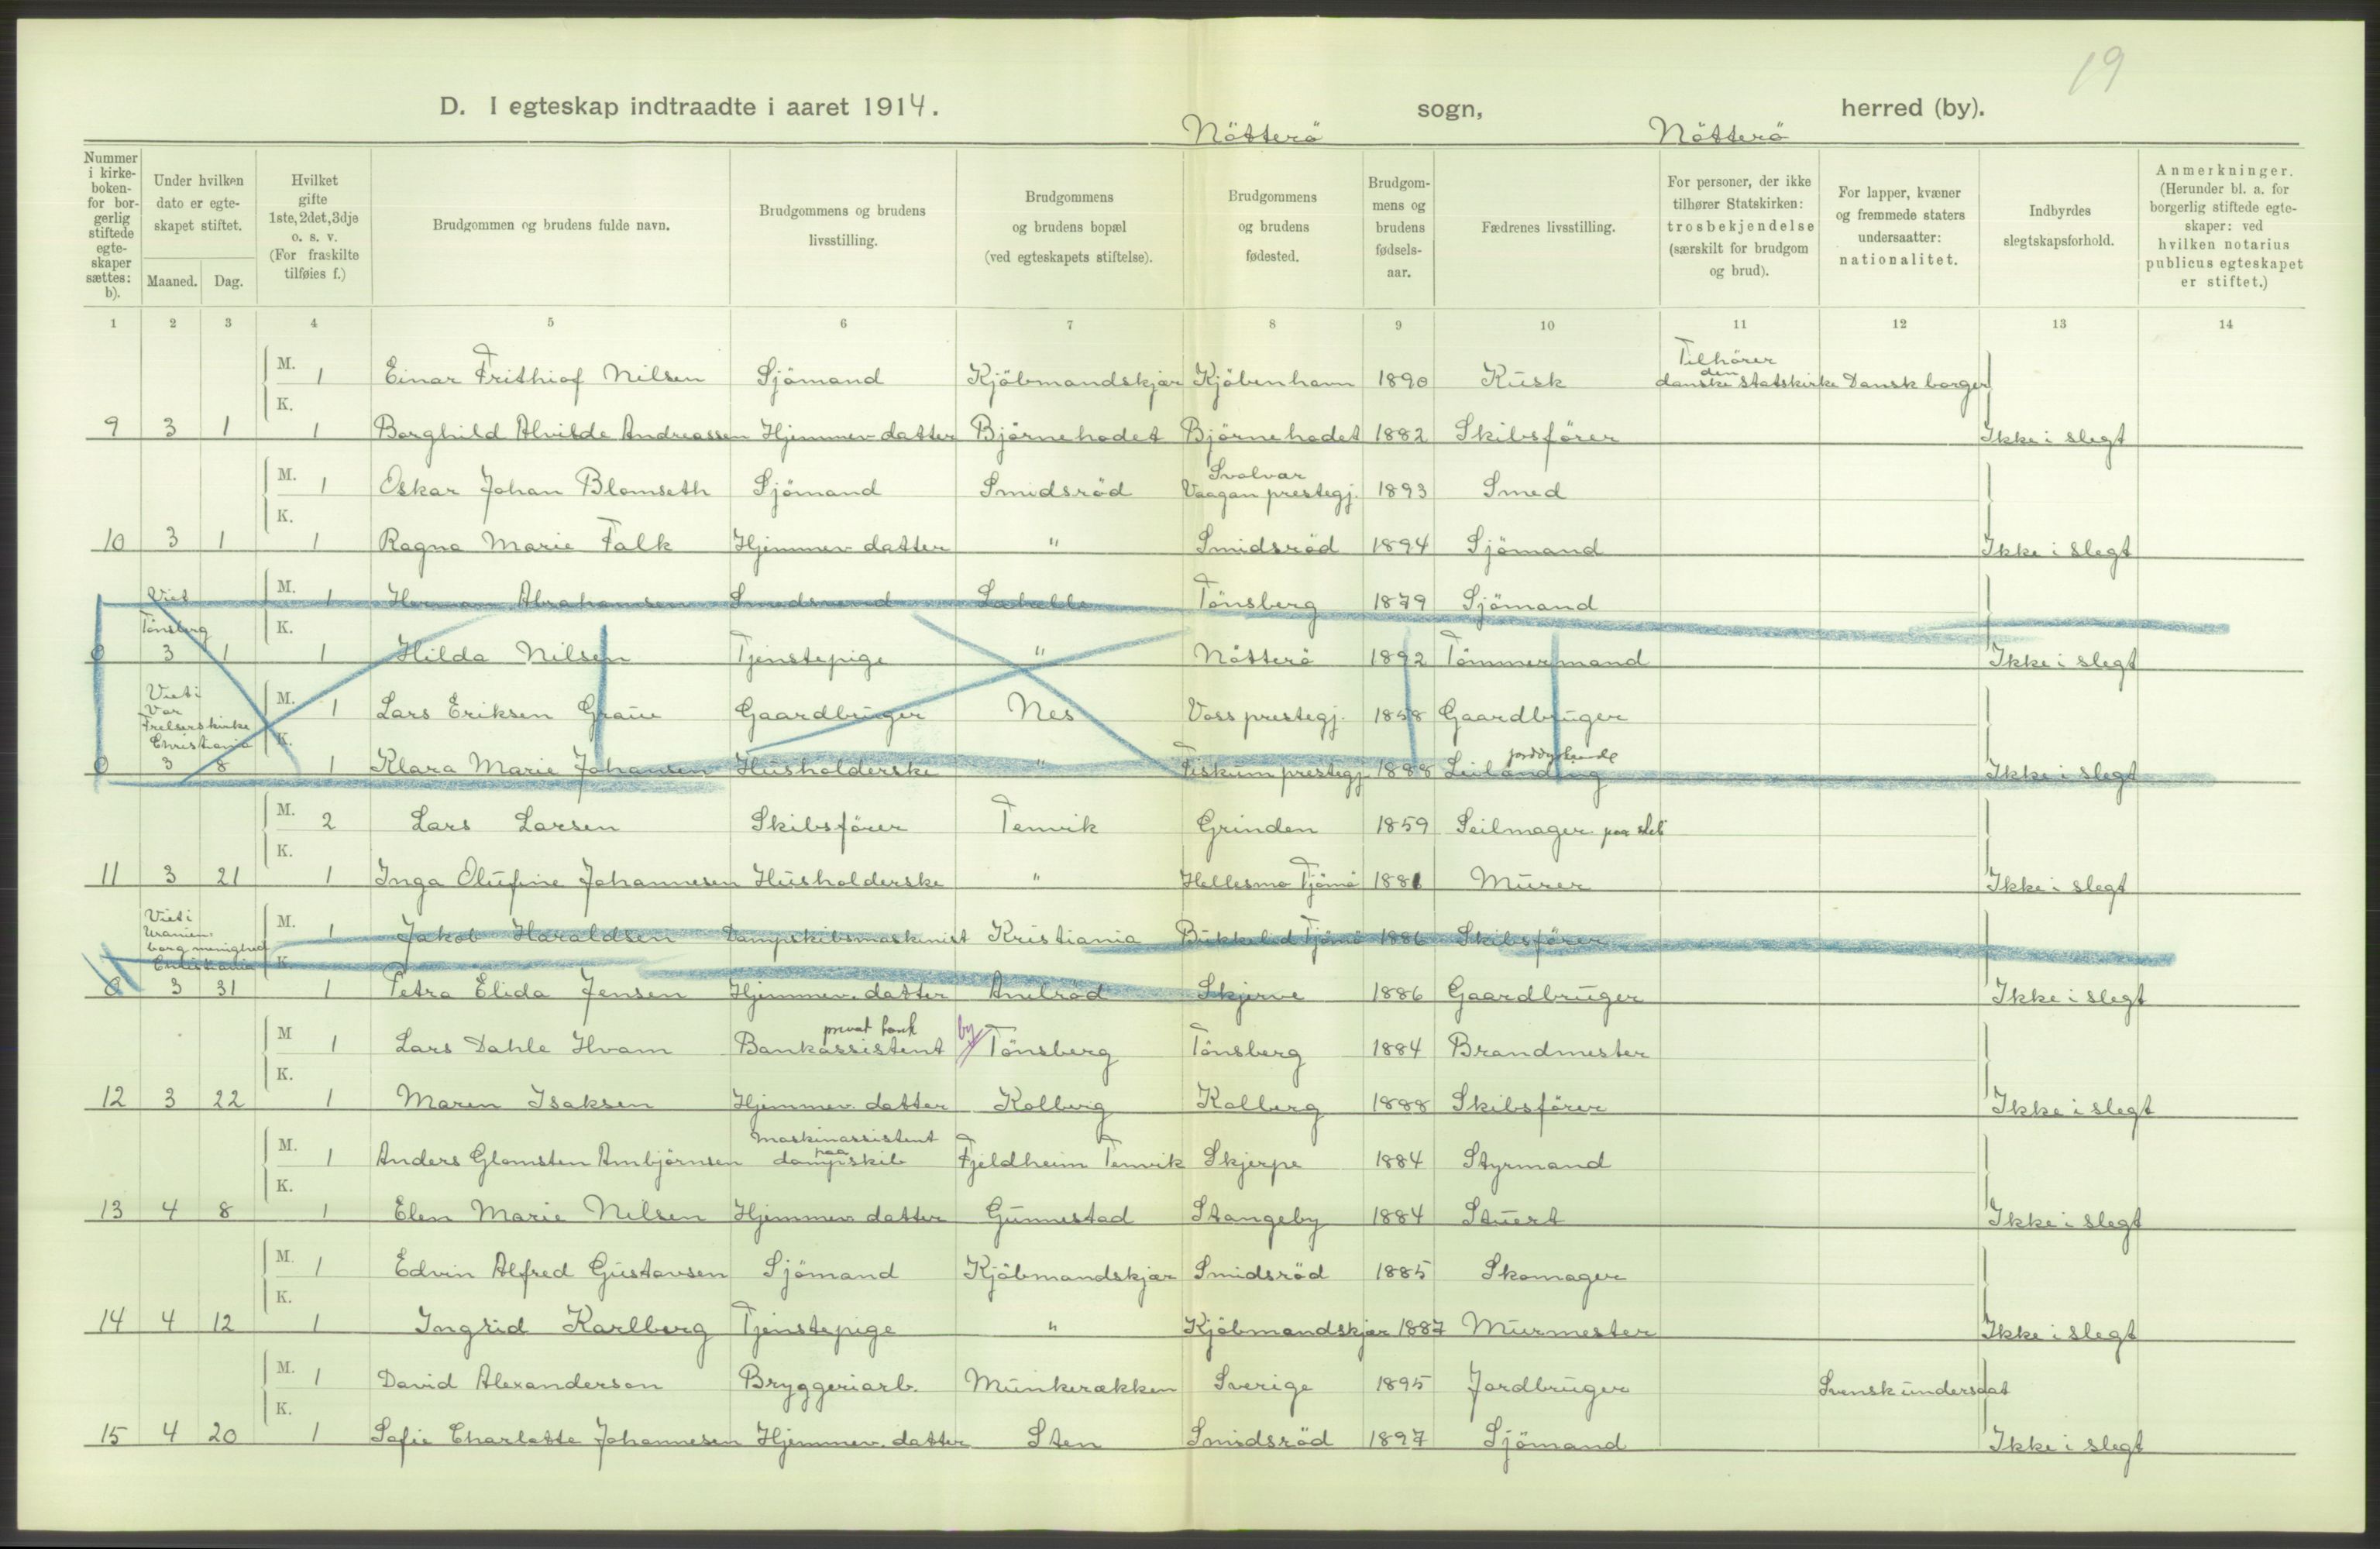 19
D. I egteskap indtraadte i aaret 1914. Nötterö sogn, Nötterö herred (by).
Nummer i kirkeboken for borgerlig stiftede egteskaper sættes: b).
Under hvilken dato er egteskapet stiftet.
Maaned. Dag.
Hvilket gifte 1ste, 2det, 3dje o. s. v. (For fraskilte tilføies f.)
Brudgommen og brudens fulde navn.
Brudgommens og brudens livsstilling.
Brudgommens og brudens bopæl (ved egteskapets stiftelse).
Brudgommens og brudens fødested.
Brudgommens og brudens fødselsaar.
Fædrenes livsstilling.
For personer, der ikke tilhører Statskirken: trosbekjendelse (særskilt for brudgom og brud).
For lapper, kvæner og fremmede staters undersaatter: nationalitet.
Indbyrdes slegtskapsforhold.
Anmerkninger. (Herunder bl. a. for borgerlig stiftede egteskaper: ved hvilken notarius publicus egteskapet er stiftet.)
1 2 3 4 5 6 7 8 9 10 11 12 13 14
M. 1 Einar Frithiof Nilsen Sjömand Kjöbmandskjær Kjöbenhavn 1890 Kusk Tilhörer den danske statskirke Dansk borger
K.
9 3 1 1 Borghild Alvilde Andreassen Hjemmev. datter Björnehodet Björnehodet 1882 Skibsförer Ikke i slegt
M. 1 Oskar Johan Blomseth Sjömand Smidsröd Svolvar Vaagan prestegj. 1893 Smed
K.
10 3 1 1 Ragna Marie Falk Hjemmev. datter " Smidsröd 1894 Sjömand Ikke i slegt
Viet Tönsberg
M. 1 Herman Abrahamsen Smedsvend Tönsberg 1879 Sjömand
K.
0 3 1 1 Hilda Nilsen Tjenstepige " Nötterö 1892 Tömmermand Ikke i slegt
Viet i Vor Frelsers kirke Christiania
M. 1 Lars Eriksen Graue Gaardbruger Nes Voss prestegj. 1858 Gaardbruger
K.
0 3 8 1 Klara Marie Johansen Husholderske " Fiskum prestegj. 1888 Leilænding jorddyrkende Ikke i slegt
M. 2 Lars Larsen Skibsförer Tenvik Grinden 1859 Seilmager paa sted
K.
11 3 21 1 Inga Olufine Johannesen Husholderske " Hellesmo Tjömö 1881 Murer Ikke i slegt
Viet i Uranienborg menighed Christiania
M. 1 Jakob Haraldsen Dampskibsmaskinist Kristiania Bukkelid Tjömö 1886 Skibsförer
K.
0 3 31 1 Petra Elida Jensen Hjemmev. datter Anelröd Skjerve 1886 Gaardbruger Ikke i slegt
M 1 Lars Dahle Hvam Bankassistent privat bank by Tönsberg Tönsberg 1884 Brandmester
K.
12 3 22 1 Maren Isaksen Hjemmev. datter Kolberg Kolberg 1888 Skibsförer Ikke i slegt
M. 1 Anders Glomsten Arnbjörnsen Maskinassistent paa dampskib Fjeldheim Tenvik Skjerpe 1884 Styrmand
K.
13 4 8 1 Elen Marie Nilsen Hjemmev. datter Gunnestad Stangeby 1884 Stuert Ikke i slegt
M. 1 Edvin Alfred Gustavsen Sjömand Kjöbmandskjær Smidsröd 1885 Skomager
K.
14 4 12 1 Ingrid Karlberg Tjenstepige " Kjöbmandskjær 1887 Murmester Ikke i slegt
M. 1 David Alexanderson Bryggeriarb. Munkerækken Sverige 1895 Jordbruger Svensk undersaat
K.
15 4 20 1 Sofie Charlotte Johannesen Hjemmev. datter Sten Smidsröd 1897 Sjömand Ikke i slegt